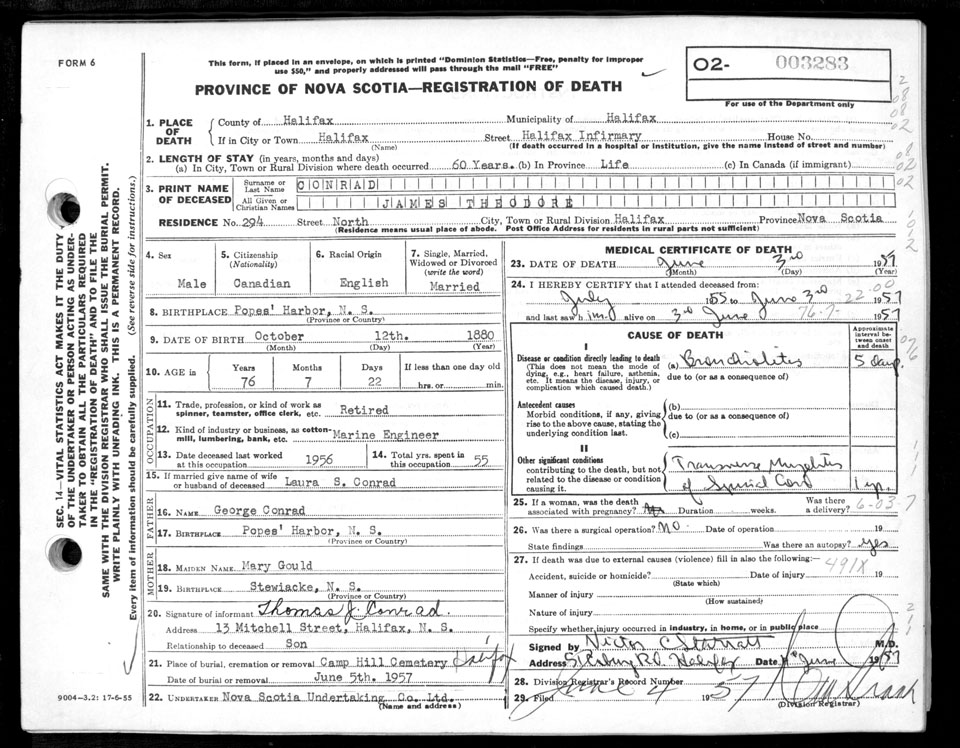 FORM 6
This form, if placed in an envelope, on which is printed "Dominion Statistics—Free, penalty for improper
use $50," and properly addressed will pass through the mail "FREE"
PROVINCE OF NOVA SCOTIA—REGISTRATION OF DEATH
O2- 003283
For use of the Department only
1. PLACE OF DEATH County of Halifax Municipality of Halifax
If in City or Town Halifax Street Halifax Infirmary House No.
(Name) (If death occurred in a hospital or institution, give the name instead of street and number)
2. LENGTH OF STAY (in years, months and days)
(a) In City, Town or Rural Division where death occurred 60 Years. (b) In Province Life (c) In Canada (if immigrant)
3. PRINT NAME OF DECEASED Surname or Last Name CONRAD
All Given or Christian Names JAMES THEODORE
RESIDENCE No. 294 Street North City, Town or Rural Division Halifax Province Nova Scotia
(Residence means usual place of abode. Post Office Address for residents in rural parts not sufficient)
4. Sex Male
5. Citizenship (Nationality) Canadian
6. Racial Origin English
7. Single, Married, Widowed or Divorced (write the word) Married
8. BIRTHPLACE Popes' Harbor, N. S.
(Province or Country)
9. DATE OF BIRTH October 12th. 1880
(Month) (Day) (Year)
10. AGE Years Months Days If less than one day old
76 7 22 hrs. or min.
OCCUPATION
11. Trade, profession, or kind of work as
spinner, teamster, office clerk, etc. Retired
12. Kind of industry or business, as cotton-
mill, lumbering, bank, etc. Marine Engineer
13. Date deceased last worked at this occupation 1956 14. Total yrs. spent in this occupation 55
15. If married give name of wife
or husband of deceased Laura S. Conrad
FATHER
16. NAME George Conrad
17. BIRTHPLACE Popes' Harbor, N. S.
(Province or Country)
MOTHER
18. MAIDEN NAME Mary Gould
19. BIRTHPLACE Stewiacke, N. S.
(Province or Country)
20. Signature of informant Thomas J. Conrad.
Address 13 Mitchell Street, Halifax, N. S.
Relationship to deceased Son
21. Place of burial, cremation or removal Camp Hill Cemetery Halifax
Date of burial or removal June 5th. 1957
22. UNDERTAKER Nova Scotia Undertaking Co. Ltd.
(Name and address)
MEDICAL CERTIFICATE OF DEATH
23. DATE OF DEATH June 3rd 1957
(Month) (Day) (Year)
24. I HEREBY CERTIFY that I attended deceased from:
July 1955 to June 3rd 1957
22.00
and last saw him alive on 3rd June 1957
76-7-
CAUSE OF DEATH
Approximate interval between onset and death
I
Disease or condition directly leading to death (a) Bronchiolitis 5 days
(This does not mean the mode of dying, e.g., heart failure, asthenia, etc. It means the disease, injury, or complication which caused death.) due to (or as a consequence of)
Antecedent causes (b)
Morbid conditions, if any, giving rise to the above cause, stating the underlying condition last. due to (or as a consequence of)
(c)
II
Other significant conditions
contributing to the death, but not related to the disease or condition causing it. Transverse Myelitis
of Spinal Cord 1 yr.
25. If a woman, was the death associated with pregnancy? Duration weeks. Was there a delivery?
6-03
7
26. Was there a surgical operation? No Date of operation 19
State findings Was there an autopsy? Yes
27. If death was due to external causes (violence) fill in also the following:—
491X
Accident, suicide or homicide? Date of injury 19
(State which)
Manner of injury
(How sustained)
Nature of injury
Specify whether injury occurred in industry, in home, or in public place
Signed by Victor C. Starratt M.D.
Address Halifax Date June 1957
28. Division Registrar's Record Number
29. Filed June 4 1957
(Division Registrar)
SEC. 14—VITAL STATISTICS ACT MAKES IT THE DUTY
OF THE UNDERTAKER OR PERSON ACTING AS UNDER-
TAKER TO OBTAIN ALL THE PARTICULARS REQUIRED
IN THE "REGISTRATION OF DEATH" AND TO FILE THE
SAME WITH THE DIVISION REGISTRAR WHO SHALL ISSUE THE BURIAL PERMIT.
WRITE PLAINLY WITH UNFADING INK. THIS IS A PERMANENT RECORD.
Every item of information should be carefully supplied. (See reverse side for instructions.)
9004-3.2: 17-6-55